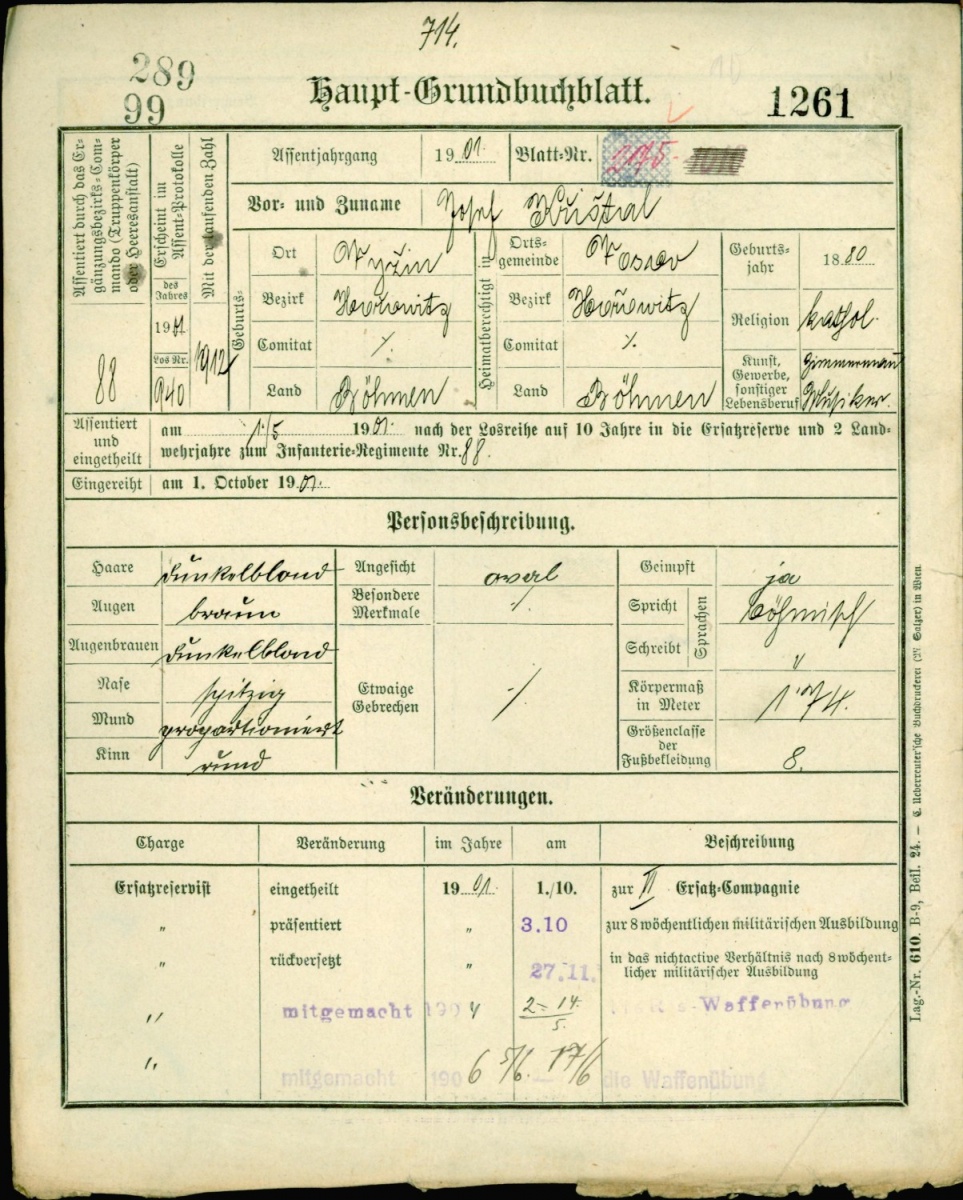 714.
289
99
Haupt-Grundbuchblatt.
1261
Assentiert durch das Er-
gänzungsbezirks-Com-
mando (Truppenkörper
oder Heeresanstalt)
88
Erscheint im
Assent-Protokolle
des
Jahres
1901
Los Nr.
940
Mit der laufenden Zahl
1912
Assentjahrgang 1901. Blatt-Nr.
Vor- und Zuname Josef
Geburts-
Ort
Bezirk Hořowitz
Comitat ⁒
Land Böhmen
Heimatberechtigt in
Orts-
gemeinde
Bezirk Hořowitz
Comitat ⁒
Land Böhmen
Geburts-
jahr 1880
Religion kathol.
Kunst,
Gewerbe,
sonstiger
Lebensberuf
Zimmermann
Musiker.
Assentiert
und
eingetheilt
am 1./5 1901. nach der Losreihe auf 10 Jahre in die Ersatzreserve und 2 Land-
wehrjahre zum Infanterie-Regimente Nr. 88.
Eingereiht am 1. October 1901.
Personsbeschreibung.
Haare dunkelblond
Augen braun
Augenbrauen dunkelblond
Nase spitzig
Mund proportioniert
Kinn rund
Angesicht oval
Besondere
Merkmale ⁒
Etwaige
Gebrechen ⁒
Geimpft ja
Spricht böhmisch
Schreibt "
Sprachen
Körpermaß
in Meter 1.74.
Größenclasse
der
Fußbekleidung 8.
Veränderungen.
Charge Veränderung im Jahre am Beschreibung
Ersatzreservist eingetheilt 1901. 1./10. zur II Ersatz-Compagnie
" präsentiert " 3.10 zur 8 wöchentlichen militärischen Ausbildung
" rückversetzt " 27.11. in das nichtactive Verhältnis nach 8 wöchent-
licher militärischer Ausbildung
" mitgemacht 1904 2-14./5. Waffenübung
" mitgemacht 1906 5/6. — 17/6 die Waffenübung
Lag.-Nr. 610. B-9, Beil. 24. — C. Ueberreuter'sche Buchdruckerei (M. Salzer) in Wien